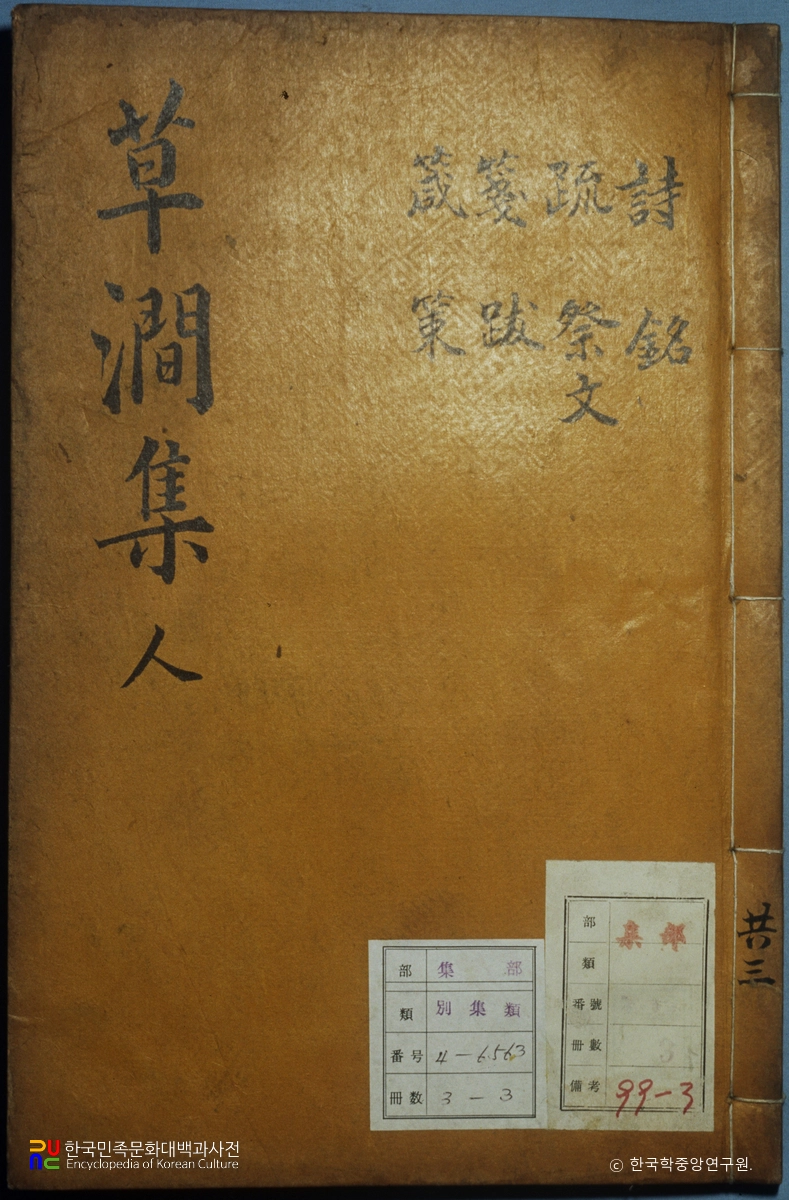 草澗集 人
詩 銘
疏 祭文
箋 跋
箴 策
共三
部 集部
類 別集類
番号 4-6563
冊数 3-3
部
類
番號
冊數
備考 99-3
한국민족문화대백과사전
Encyclopedia of Korean Culture
ⓒ 한국학중앙연구원.